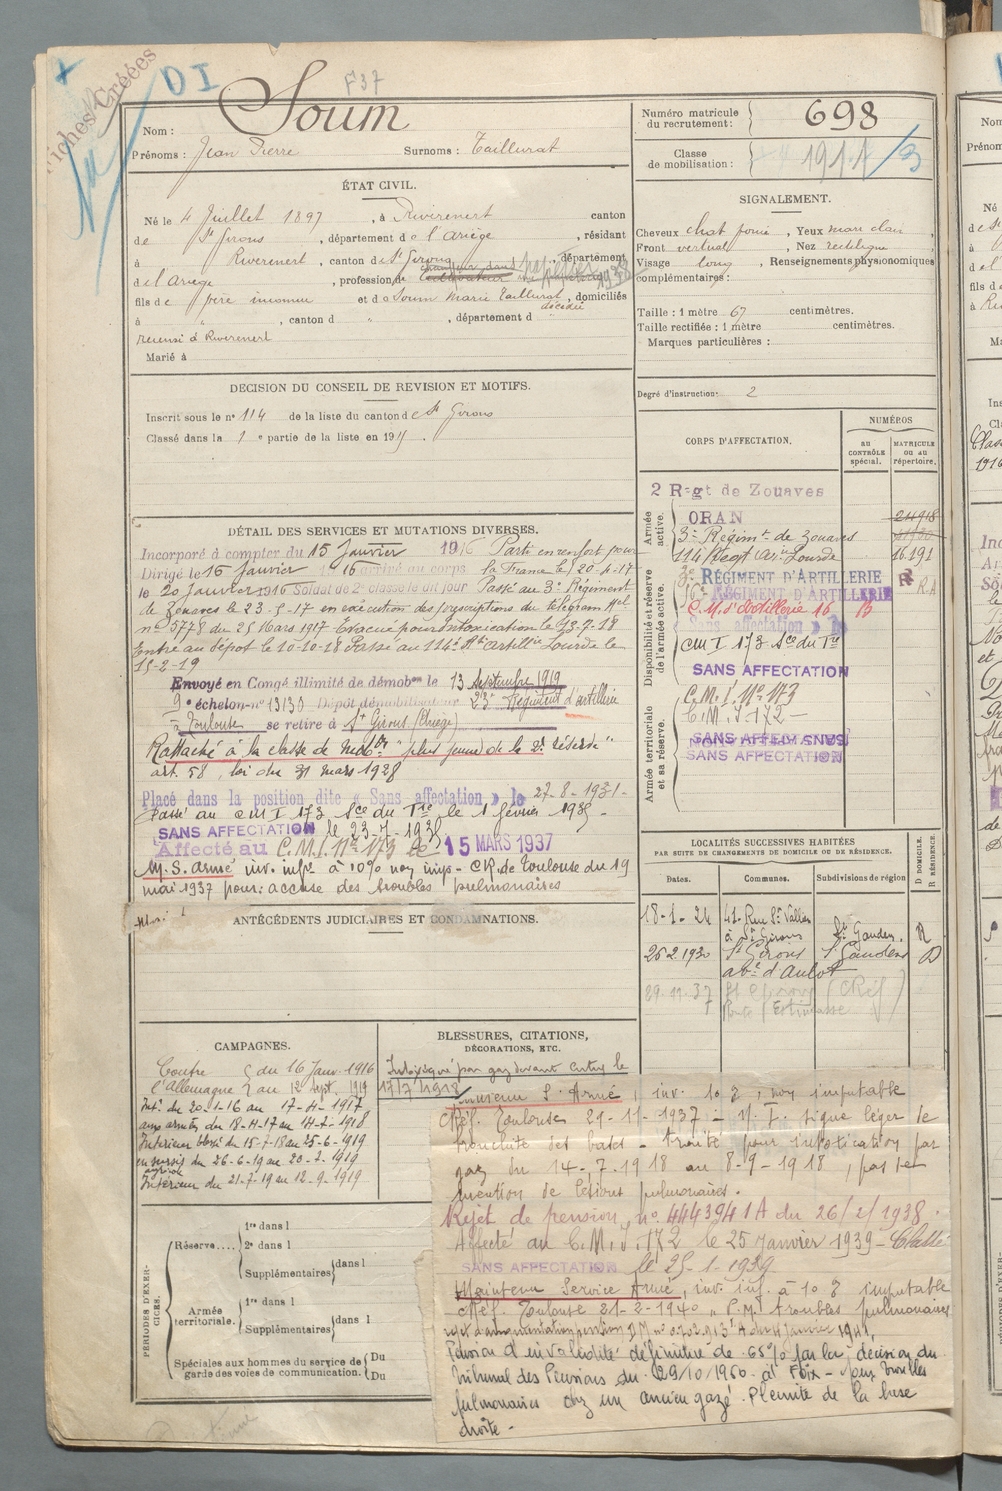 Fiches Créées
DI
F37
Nom : Soum
Prénoms : Jean Pierre Surnoms : Taillurat
Numéro matricule du recrutement : 698
Classe de mobilisation : 1911 /3
ÉTAT CIVIL.
Né le 4 Juillet 1897, à Rivèrenert canton
de St Girons, département de l'Ariège, résidant
à Rivèrenert, canton de St Girons, département
de l'Ariège, profession de
fils de père inconnu et de Soum Marie Taillurat, domiciliés
décédée
à " , canton d " , département d
recensé à Rivèrenert
Marié à
SIGNALEMENT.
Cheveux chat foncé, Yeux marr clair,
Front vertical, Nez rectiligne
Visage long, Renseignements physionomiques
complémentaires :
Taille : 1 mètre 67 centimètres.
Taille rectifiée : 1 mètre centimètres.
Marques particulières :
Degré d'instruction : 2
DECISION DU CONSEIL DE REVISION ET MOTIFS.
Inscrit sous le n° 114 de la liste du canton de St Girons
Classé dans la 1e partie de la liste en 191
CORPS D'AFFECTATION.
NUMÉROS
AU CONTRÔLE spécial.
MATRICULE OU AU répertoire.
Armée active.
2 Régt de Zouaves
ORAN 24918
3e Régimt de Zouaves
114 Regt Arie Lourde 16191
Disponibilité et réserve de l'armée active.
3e RÉGIMENT D'ARTILLERIE R
RÉGIMENT D'ARTILLERIE R.A
C.M. d'Artillerie 16
« Sans affectation »
CM I 173 Sce du Tre
SANS AFFECTATION
Armée territoriale et sa réserve.
C.M.I. N° 173
C.M.I. 172 —
SANS AFFECTATION
DÉTAIL DES SERVICES ET MUTATIONS DIVERSES.
Incorporé à compter du 15 Janvier 1916 Parti en renfort pour
Dirigé le 16 janvier 16 arrivé au corps la France le 20-4-17
le 20 Janvier 1916 Soldat de 2e classe le dit jour Passé au 3e Régiment
de Zouaves le 23-5-17 en exécution des prescriptions du télégram Mel
n° 5778 du 25 Mars 1917 Evacué pour intoxication le 15-7-18
Entré au dépôt le 10-10-18 Passé au 114e Rt artillie Lourde le
15-2-19
Envoyé en Congé illimité de démobon le 13 septembre 1919
9e échelon n° 13130 Dépôt démobilisateur 23e Régiment d'artillerie
à Toulouse se retire à St Girons (Ariège)
Rattaché à la classe de mobon "plus jeune de la 2e réserve"
art. 58, loi du 31 mars 1928
Placé dans la position dite « Sans affectation » le 27-8-1931-
Passé au CM I 173 Sce du Tre le 1 février 193
SANS AFFECTATION le 23-7-193
Affecté au C.M.I. N° 173 le 15 MARS 1937
M. S. armé inv. infre à 10% non imp. - CR. de Toulouse du 19
mai 1937 pour : accuse des troubles pulmonaires
ANTÉCÉDENTS JUDICIAIRES ET CONDAMNATIONS.
LOCALITÉS SUCCESSIVES HABITÉES
PAR SUITE DE CHANGEMENTS DE DOMICILE OU DE RÉSIDENCE.
Dates. Communes. Subdivisions de région D DOMICILE. R RÉSIDENCE.
18-1-24 41 Rue St Vallier
à St Girons St Gaudens. R
26 2 1930 St Girons St Gaudens D
av. d'Aulot
29-11-37 St Girons (Réf)
CAMPAGNES.
Contre du 16 Janv. 1916
l'Allemagne au 12 Sept. 1919
Int. du 20-1-16 au 17-4-1917
aux armées du 18-4-17 au 14-7-1918
Intérieur blessé du 15-7-18 au 25-6-1919
en sursis agricole du 26-6-19 au 20-7-1919
Intérieur du 21-7-19 au 12-9-1919
BLESSURES, CITATIONS,
DÉCORATIONS, ETC.
Intoxiqué par gaz devant le
17/7/1918
Maintenu S. Armé, inv. 10%, non imputable
Toulouse 29-11-1937 - N.I. signe léger de
bronchite des bases - traité pour intoxication par
gaz du 14-7-1918 au 8-9-1918, pas de
mention de lésions pulmonaires.
Rejet de pension n° 444394 1A du 26/2/1938.
Affecté au C.M.I. 172 le 25 Janvier 1939 - Classé
SANS AFFECTATION le 25-1-1939
Maintenu Service Armé, inv. inf. à 10% imputable
Toulouse 21-2-1940 P.M. troubles pulmonaires
Pension d'invalidité définitive de 65% par la décision du
Tribunal des Pensions du 29/10/1960 à Foix - pour troubles
pulmonaires chez un ancien gazé. Pleurite de la base
droite -
PÉRIODES D'EXERCICES.
Réserve....
1re dans l
2e dans l
Supplémentaires dans l
Armée territoriale.
1re dans l
Supplémentaires dans l
Spéciales aux hommes du service de garde des voies de communication. Du
Du